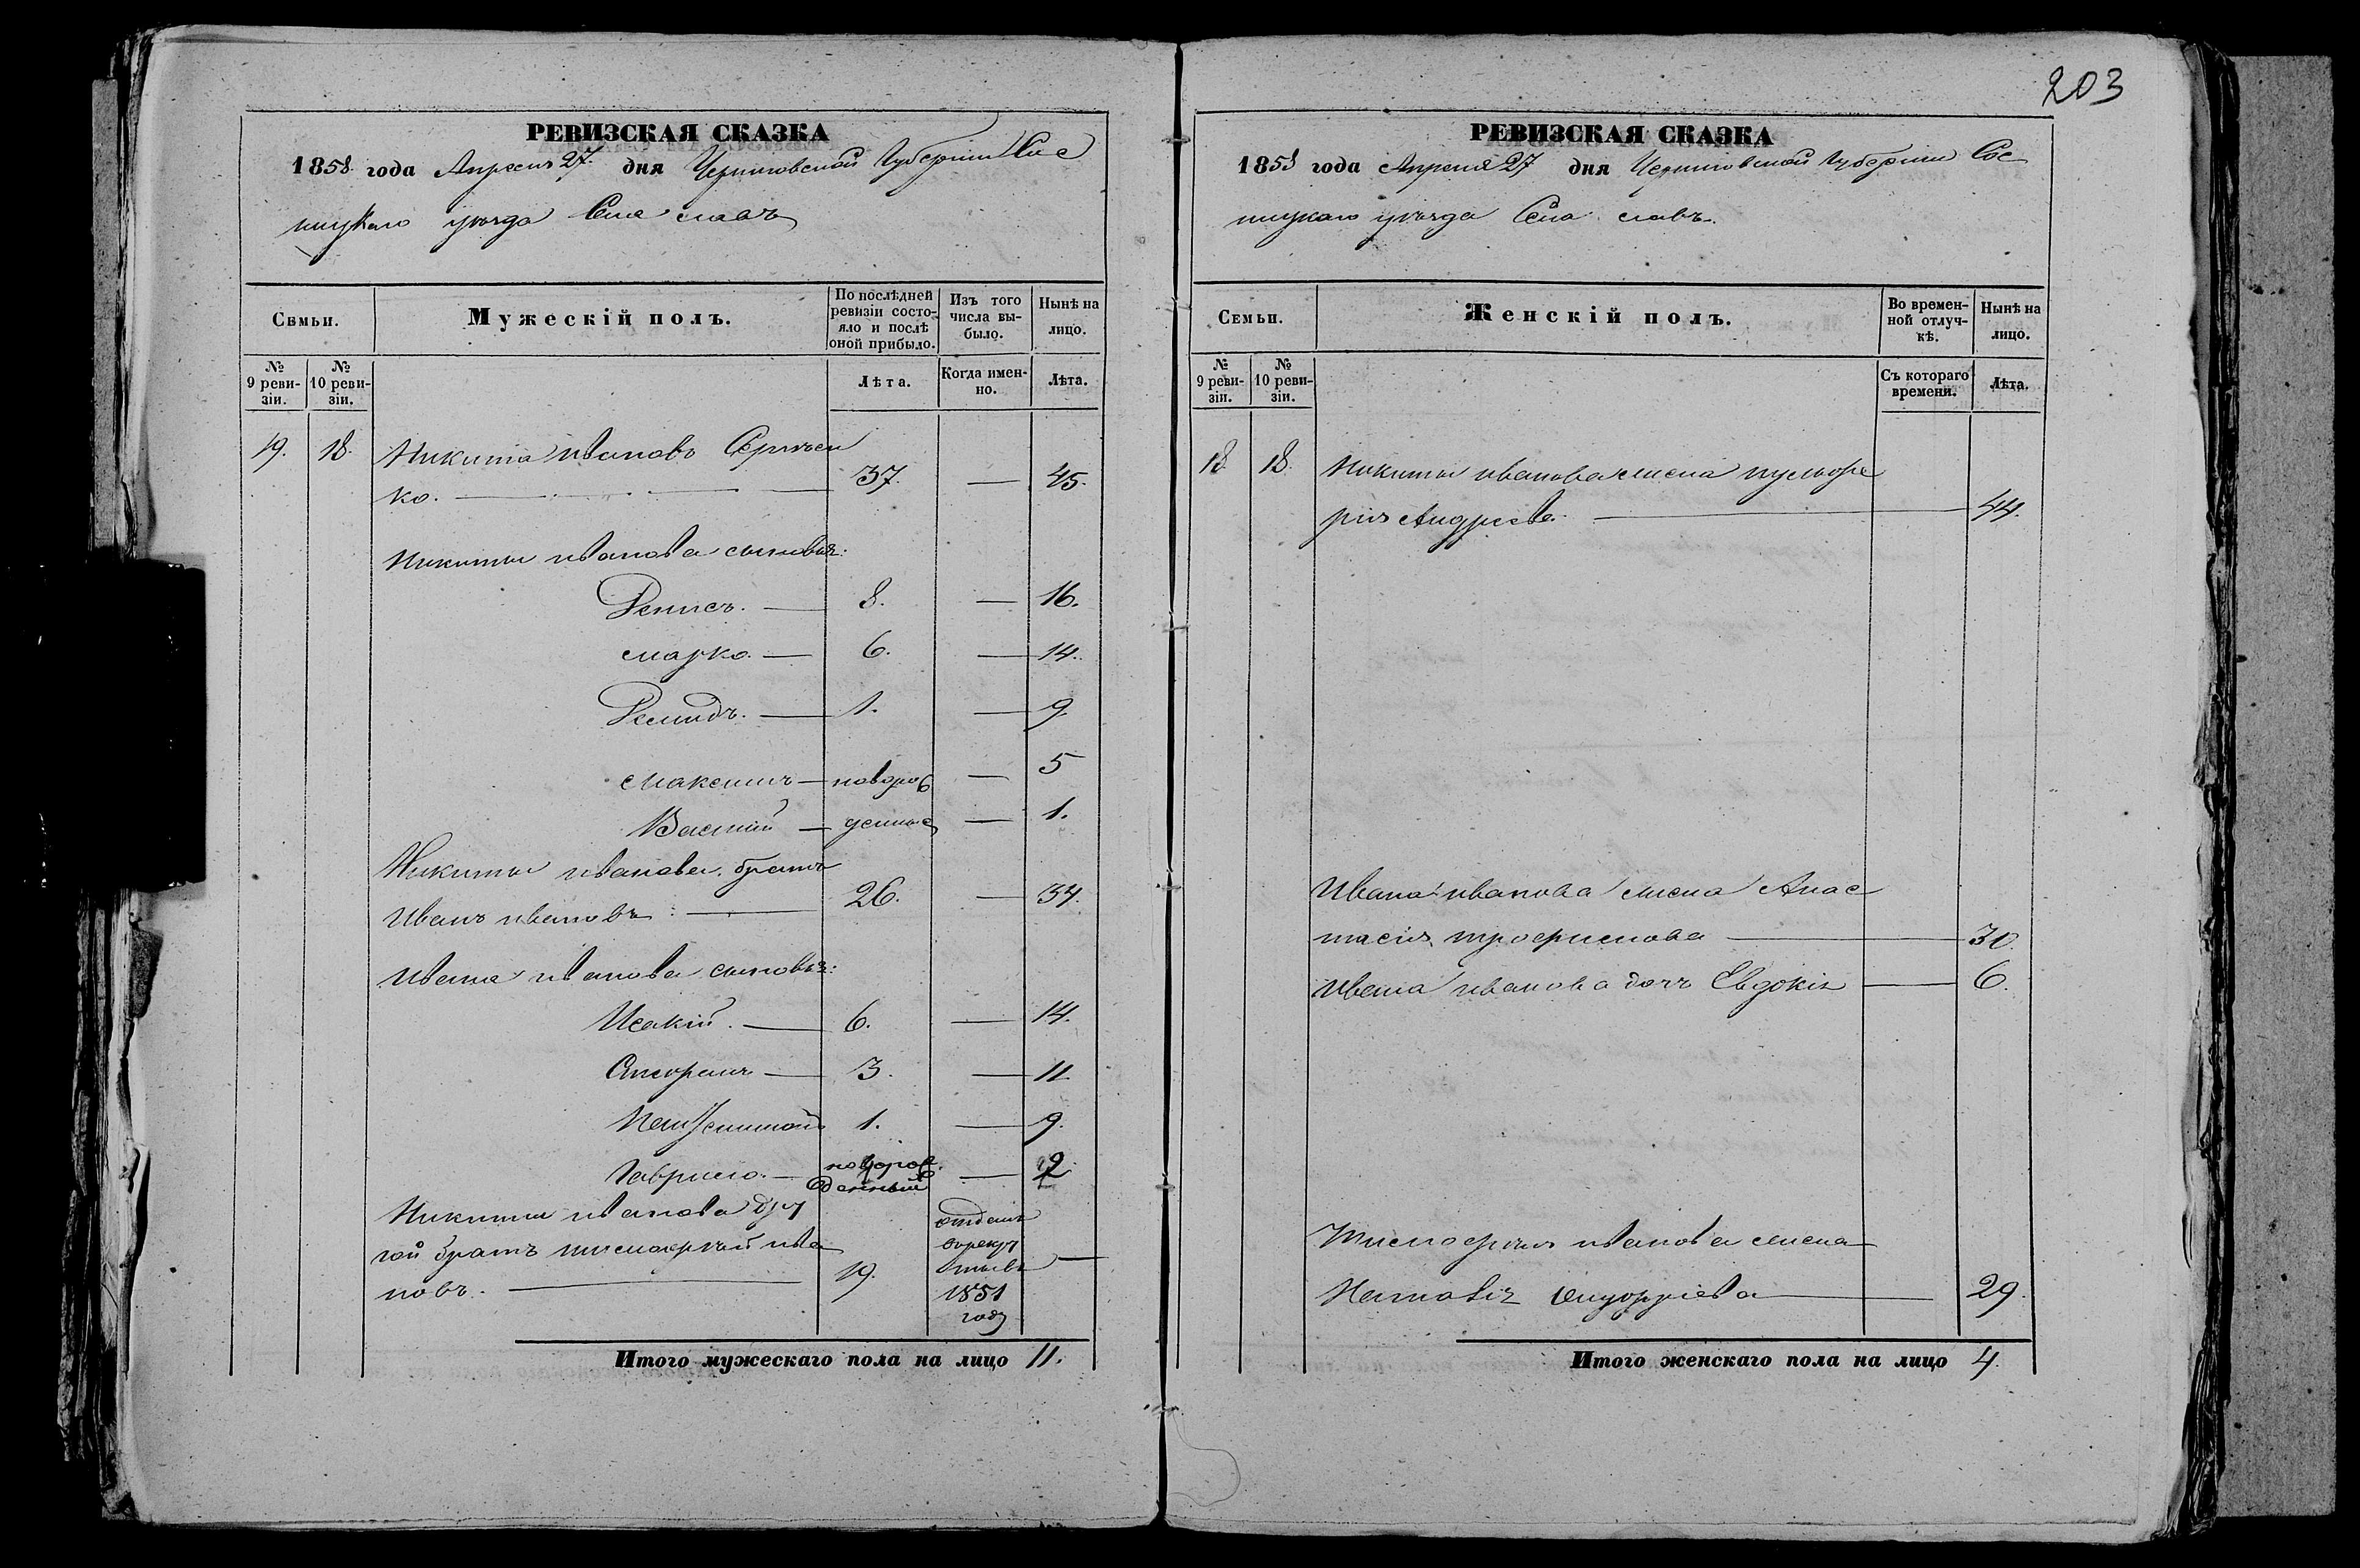 203
РЕВИЗСКАЯ СКАЗКА
1858 года Апреля 27 дня Черниговской Губернии Сос
ницкаго уезда Села
Семьи.
Мужескій полъ.
По послѣдней ревизіи состо-
яло и послѣ
оной прибыло.
Изъ того
числа вы-
было.
Нынѣ на
лицо.
№
9 реви-
зіи.
№
10 реви-
зіи.
Лѣта.
Когда имен-
но.
Лѣта.
19. 18. Никита Ивановъ
ко. 37. — 45.
Никиты Иванова сыновья:
Денисъ. — 8. — 16.
Марко. — 6. — 14.
Демидъ. — 1. — 9.
Максимъ — новорож — 5
Василий — денные — 1.
Никиты Иванова братъ
Иванъ Ивановъ — 26. — 34.
Ивана Иванова сыновья:
Исакій. — 6. — 14.
3. — 11.
1. — 9.
Гаврило. — новорож денный — 2
Никиты Иванова дру
гой братъ Тимофей Ива
новъ. — 19. отданъ
в рекру
ты въ
1851
году —
Итого мужескаго пола на лицо 11.
РЕВИЗСКАЯ СКАЗКА
1858 года Апреля 27 дня Черниговской Губернии Сос
ницкаго уезда Села
Семьи.
Женскій полъ.
Во времен-
ной отлуч-
кѣ.
Нынѣ на
лицо.
№
9 реви-
зіи.
№
10 реви-
зіи.
Съ котораго
времени.
Лѣта.
18. 18. Никиты Иванова жена Пульхе
рия Андреева — 44.
Ивана Иванова жена Анас
тасія Трофимова — 30.
Ивана Иванова дочь Евдокія — 6.
Тимофея Иванова жена
29.
Итого женскаго пола на лицо 4.